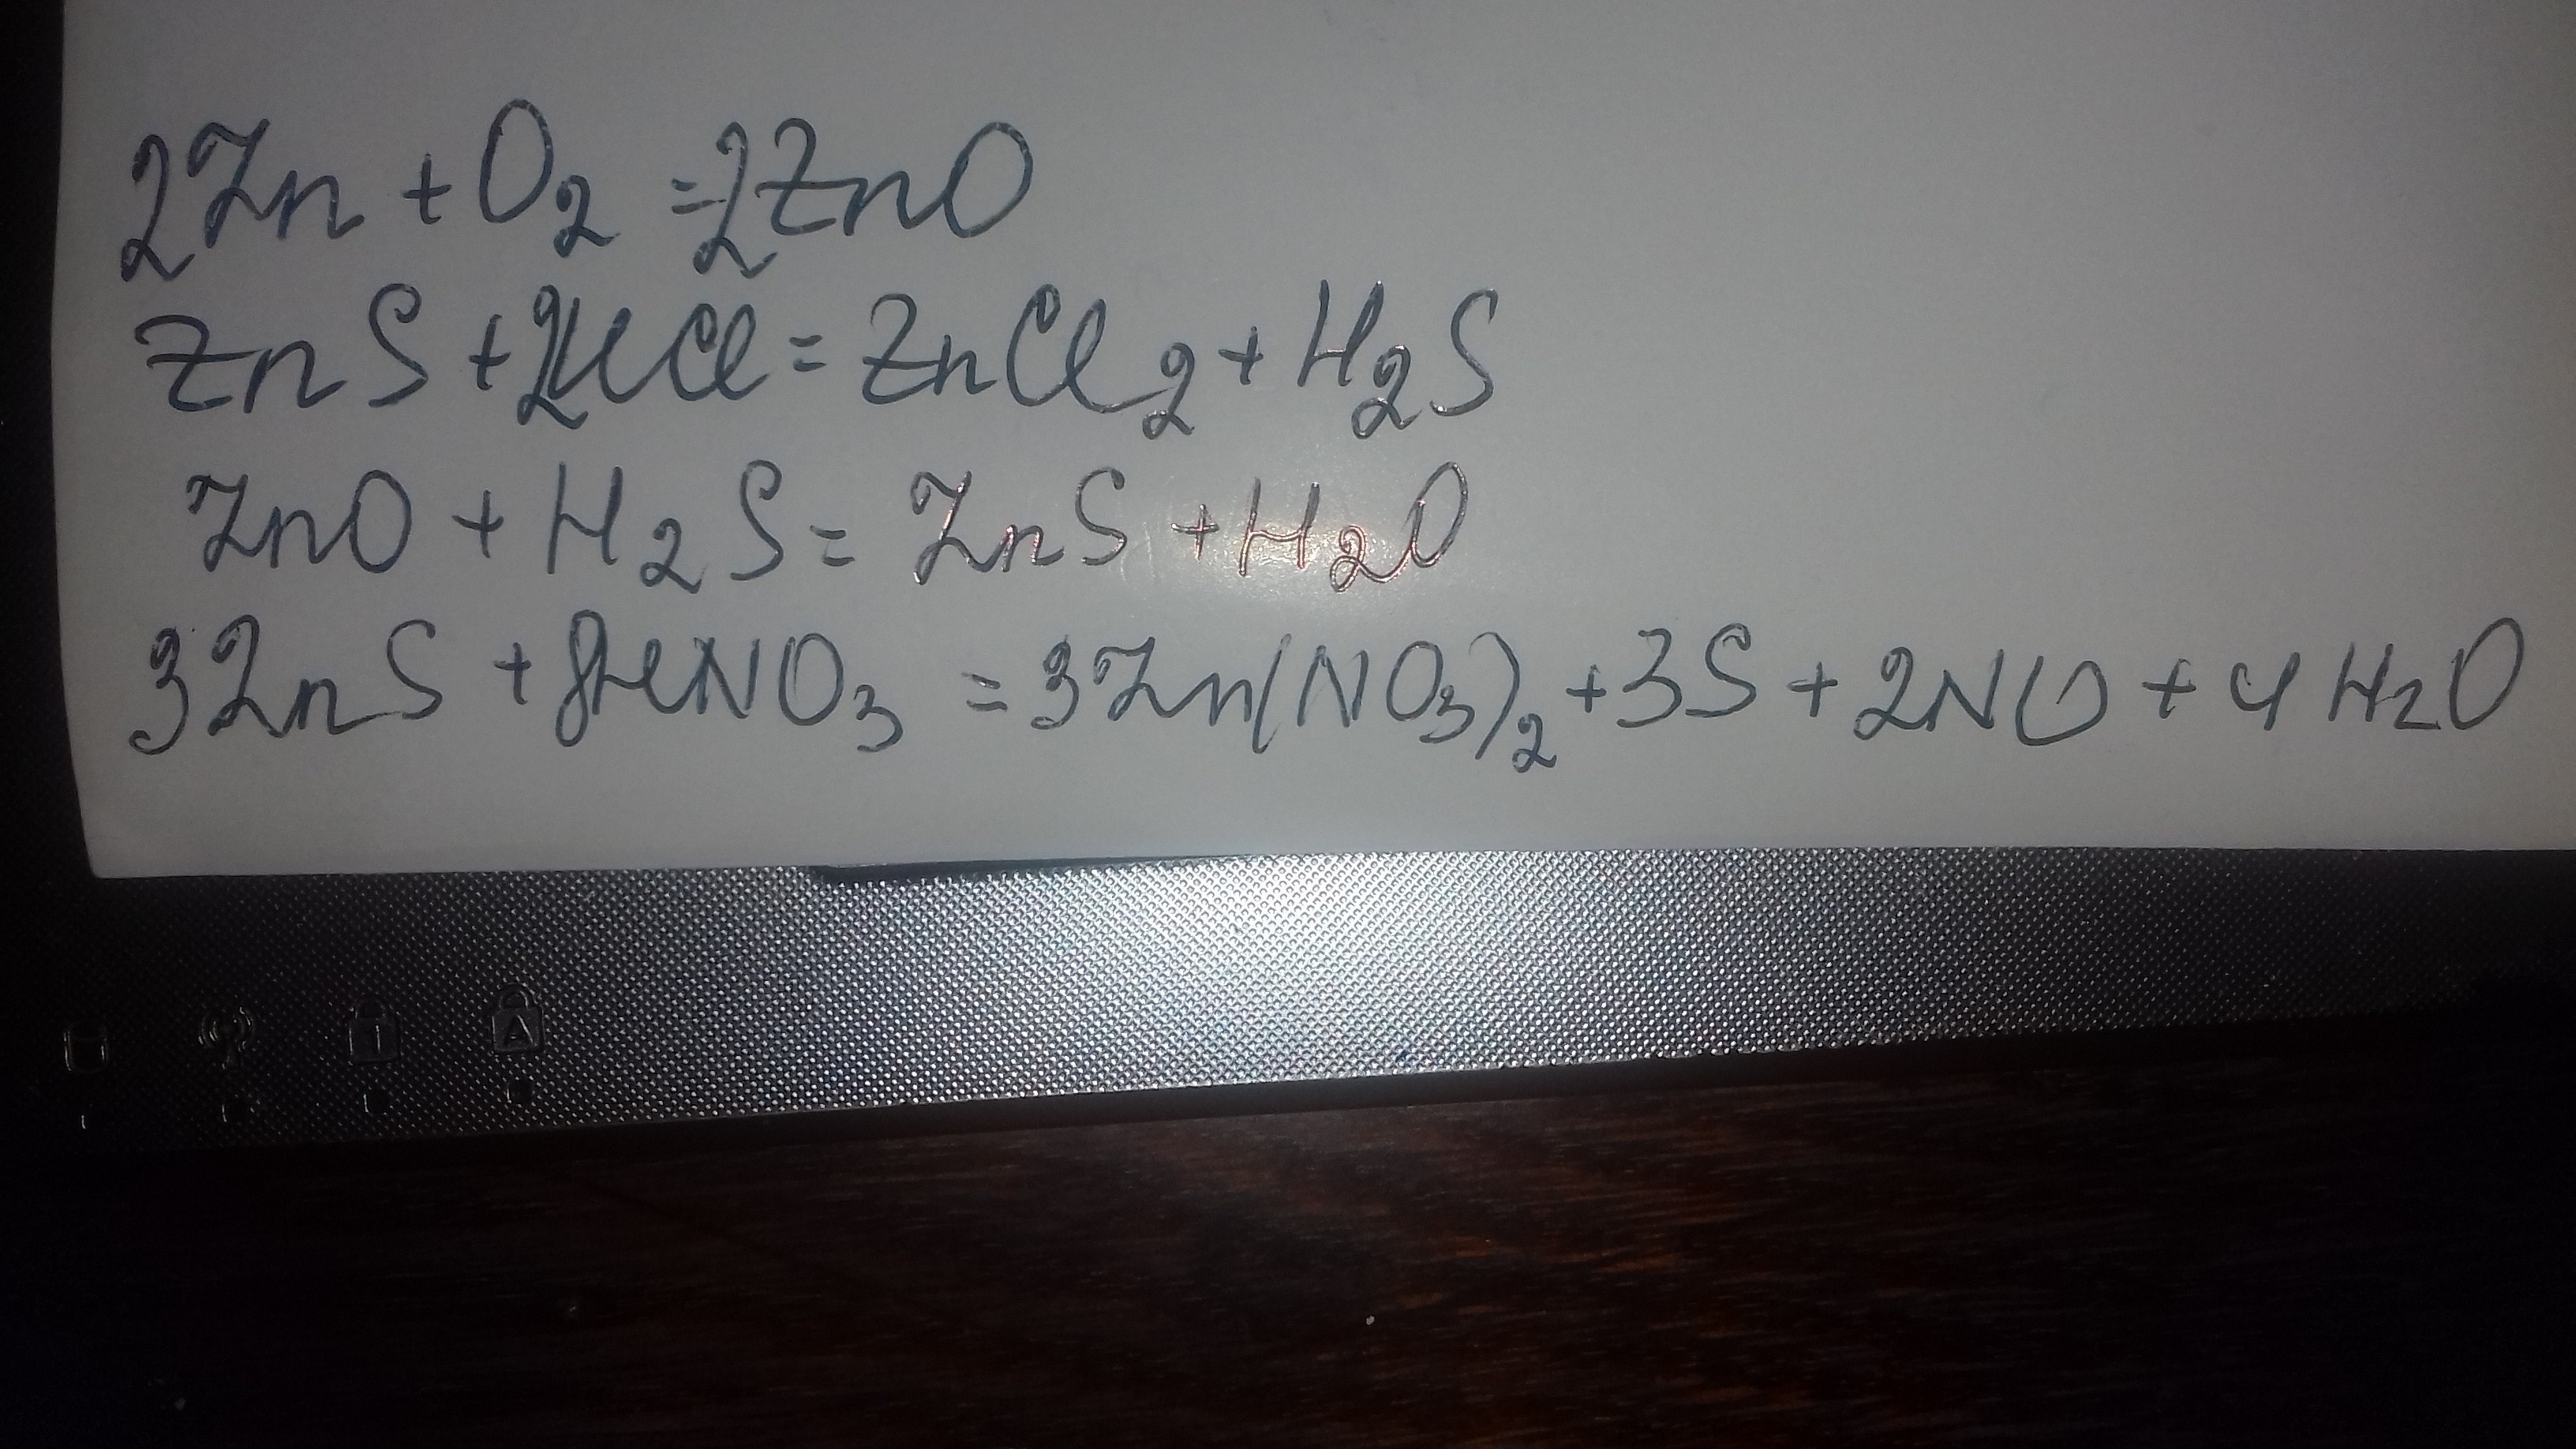 2Zn + O2 = 2ZnO
ZnS + 2HCl = ZnCl2 + H2S
ZnO + H2S = ZnS + H2O
3ZnS + 8HNO3 = 3Zn(NO3)2 + 3S + 2NO + 4H2O
1 A